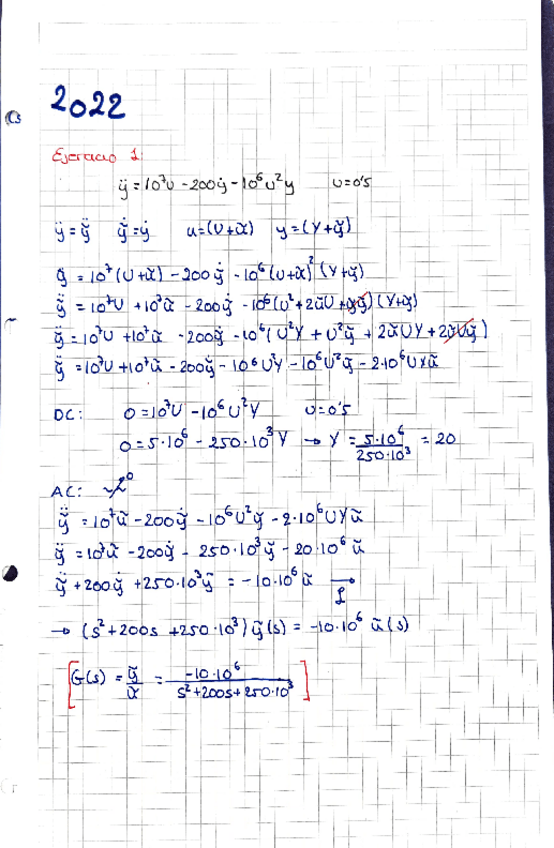 2022
Cs
Ejercicio 1:
ÿ = 10⁷u - 200ẏ - 10⁶u²y u = 0'5
ÿ = ỹ̈ ẏ = ỹ̇ u = (U+ũ) y = (Y+ỹ)
ỹ̈ = 10⁷(U+ũ) - 200ỹ̇ - 10⁶(U+ũ)²(Y+ỹ)
ỹ̈ = 10⁷U + 10⁷ũ - 200ỹ̇ - 10⁶(U² + 2ũU + ) (Y+ỹ)
ỹ̈ = 10⁷U + 10⁷ũ - 200ỹ̇ - 10⁶(U²Y + U²ỹ + 2ũUY + 2ũUỹ)
ỹ̈ = 10⁷U + 10⁷ũ - 200ỹ̇ - 10⁶U²Y - 10⁶U²ỹ - 2·10⁶UYũ
DC: 0 = 10⁷U - 10⁶U²Y U = 0'5
0 = 5·10⁶ - 250·10³Y → Y = 5·10⁶/250·10³ = 20
AC:
ỹ̈ = 10⁷ũ - 200ỹ̇ - 10⁶U²ỹ - 2·10⁶UYũ
ỹ̈ = 10⁷ũ - 200ỹ̇ - 250·10³ỹ - 20·10⁶ũ
ỹ̈ + 200ỹ̇ + 250·10³ỹ = -10·10⁶ũ → ℒ
→ (s² + 200s + 250·10³) ỹ(s) = -10·10⁶ ũ(s)
[G(s) = ỹ/ũ = -10·10⁶/s²+200s+250·10³]